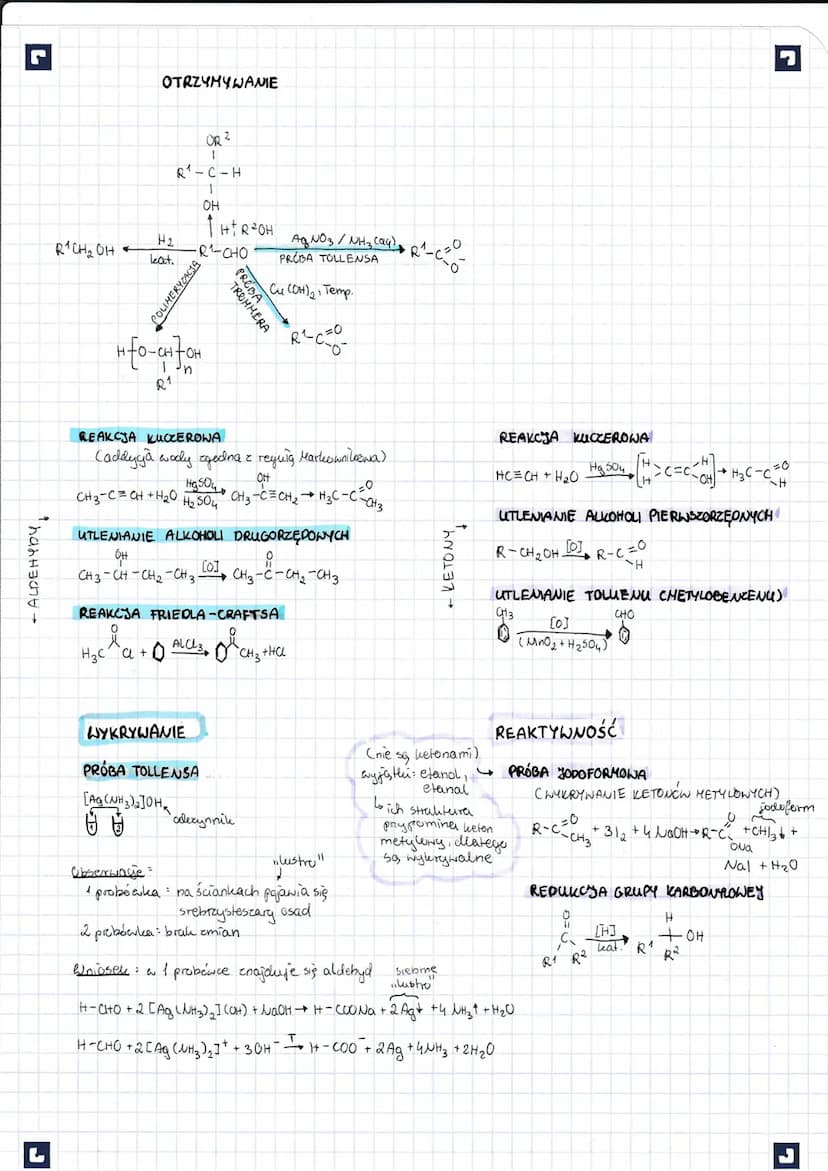 OTRZYMYWANIE
OR²
R¹-C-H
OH
H⁺ R²OH
R¹CH₂OH
H₂
kat.
R¹-CHO
AgNO₃ / NH₃(aq)
PRÓBA TOLLENSA
R¹-C=O
O⁻
POLIMERYZACJA
PRÓBA
TROMMERA
Cu(OH)₂, Temp.
R¹-C=O
O⁻
H-[O-CH]-OH
n
R¹
← ALDEHYDY →
REAKCJA KUCZEROWA
(addycja wody zgodna z regułą Markownikowa)
OH
CH₃-C≡CH + H₂O HgSO₄ H₂SO₄ → CH₃-C=CH₂ → H₃C-C=O
CH₃
UTLENIANIE ALKOHOLI DRUGORZĘDOWYCH
OH O
CH₃-CH-CH₂-CH₃ [O] → CH₃-C-CH₂-CH₃
REAKCJA FRIEDLA-CRAFTSA
O O
H₃C Cl + AlCl₃ → CH₃ + HCl
← KETONY →
REAKCJA KUCZEROWA
HC≡CH + H₂O HgSO₄ → [H H >C=C< H OH] → H₃C-C=O
H
UTLENIANIE ALKOHOLI PIERWSZORZĘDNYCH
R-CH₂OH [O] → R-C=O
H
UTLENIANIE TOLUENU (METYLOBENZENU)
CH₃ [O] CHO
(MnO₂ + H₂SO₄)
WYKRYWANIE
PRÓBA TOLLENSA
[Ag(NH₃)₂]OH
odczynnik
1 2
Obserwacje:
"lustro"
1 probówka: na ściankach pojawia się
srebrzystoszary osad
2 probówka: brak zmian
Wniosek: w 1 probówce znajduje się aldehyd
srebrne
"lustro"
H-CHO + 2[Ag(NH₃)₂](OH) + NaOH → H-COONa + 2Ag↓ + 4NH₃↑ + H₂O
H-CHO + 2[Ag(NH₃)₂]⁺ + 3OH⁻ T → H-COO⁻ + 2Ag + 4NH₃ + 2H₂O
(nie są ketonami)
wyjątki: etanol,
etanal
↳ ich struktura
przypomina keton
metylowy, dlatego
są wykrywalne
REAKTYWNOŚĆ
PRÓBA JODOFORMOWA
(WYKRYWANIE KETONÓW METYLOWYCH)
jodoform
R-C=O CH₃ + 3I₂ + 4NaOH → R-C=O ONa + CHI₃↓ +
NaI + H₂O
REDUKCJA GRUPY KARBONYLOWEJ
O H
C [H] OH
R¹ R² kat. R¹ R²